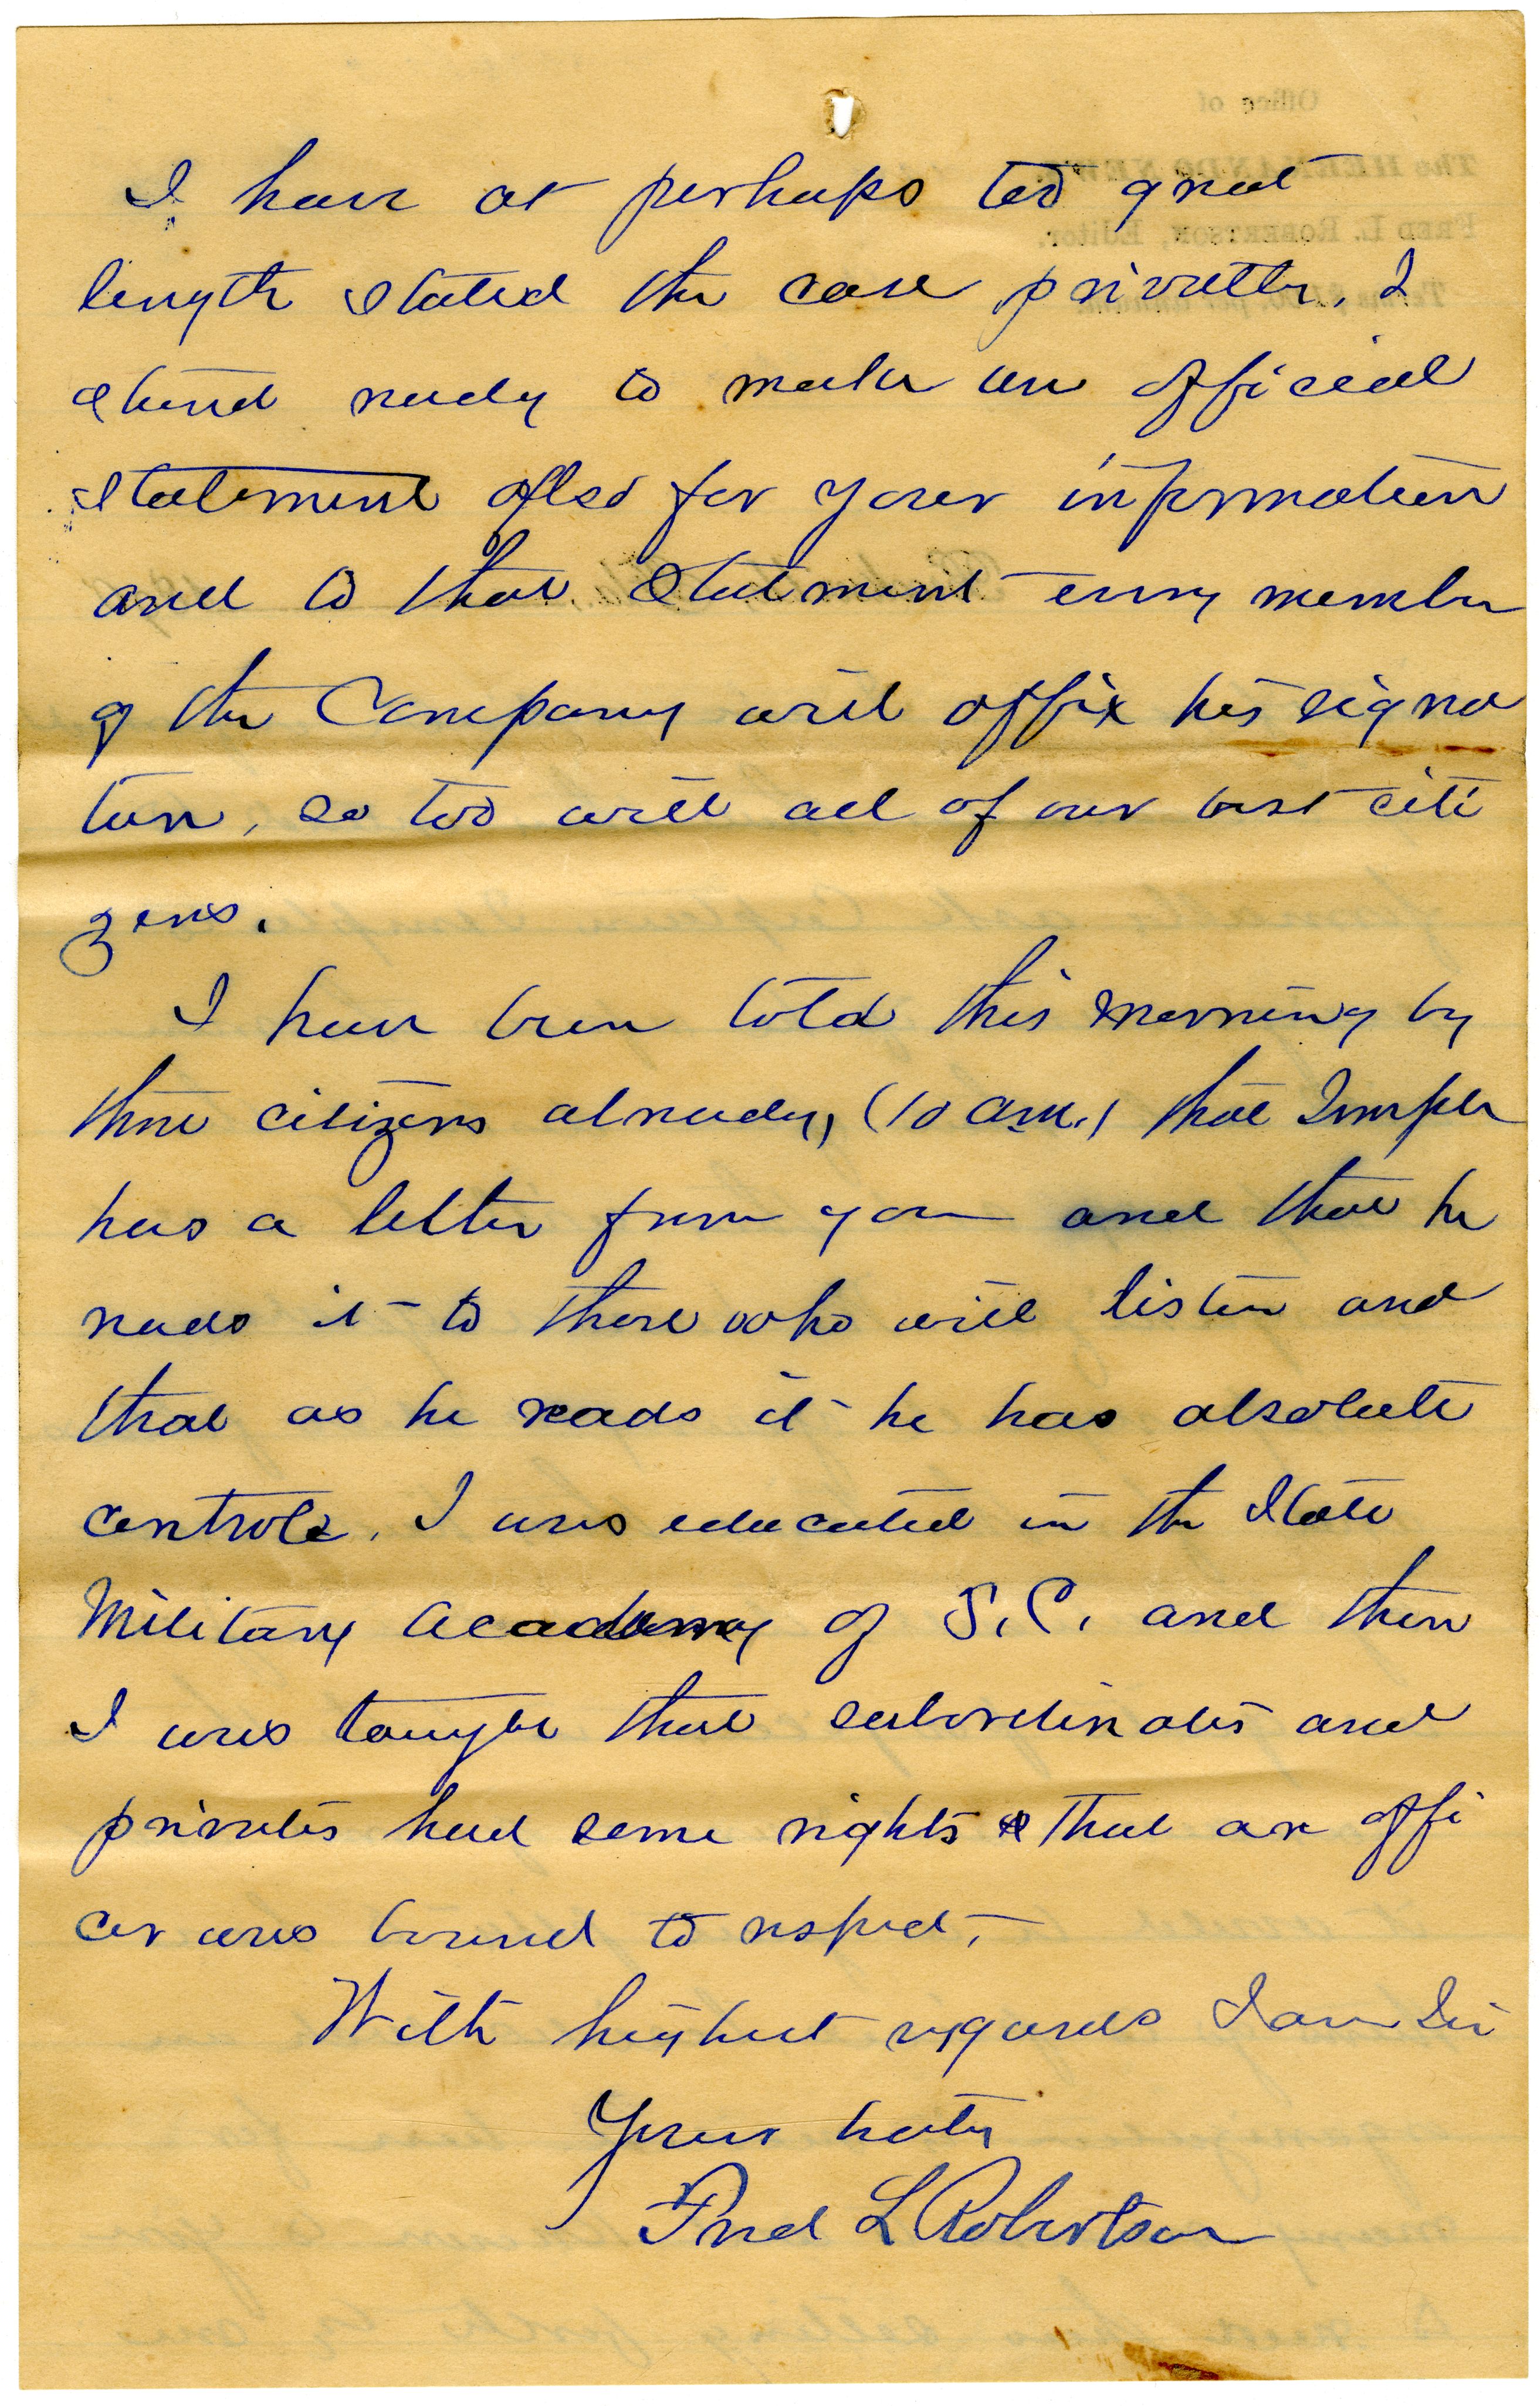 I have at perhaps too great
length stated the case privately, I
stand ready to make an official
statement also for your information
and to that statement every member
of the Company will affix his signa
ture, so too will all of our best citi
zens.
I have been told this morning by
three citizens already, (10 a.m.) that Temple
has a letter from you and that he
reads it to those who will listen and
that as he reads it he has absolute
control. I was educated in the State
Military Academy of S.C. and there
I was taught that subordinates and
privates had some rights that an offi
cer was bound to respect.
With highest regards I am Sir
Your
Fred L Robertson
Office of
The HERNANDO NEWS
FRED L. ROBERTSON, Editor.